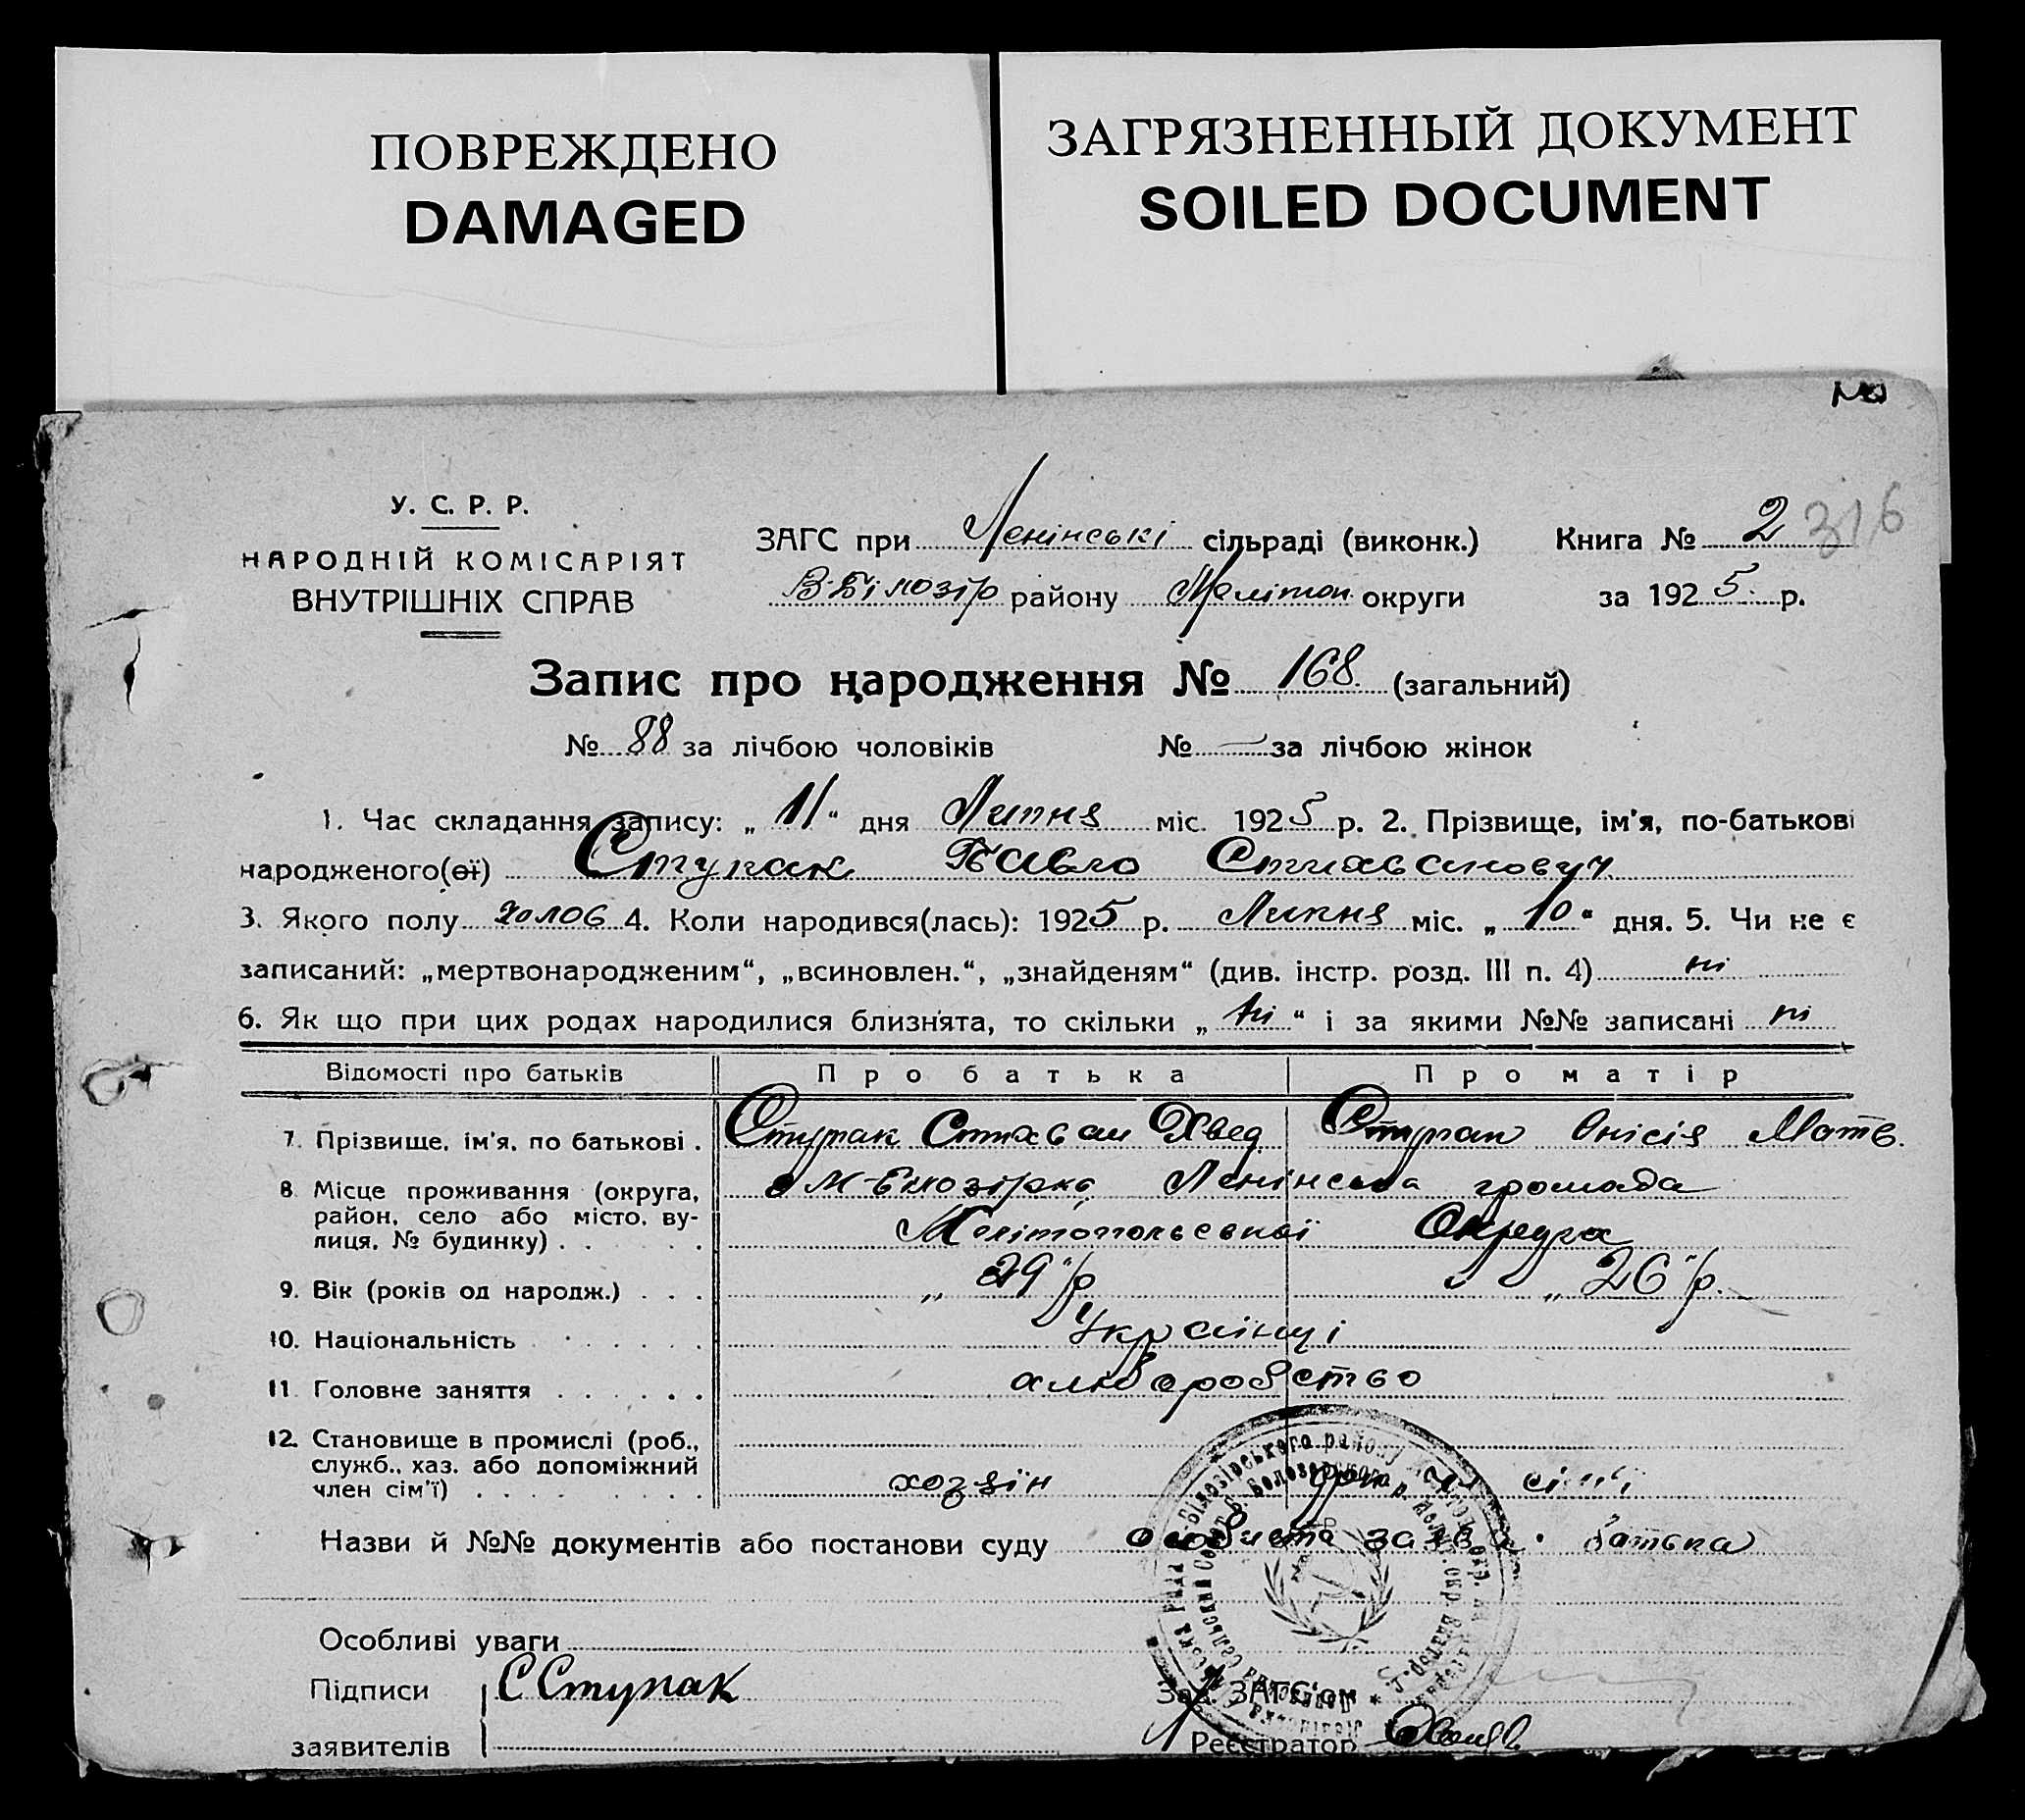 ПОВРЕЖДЕНО
DAMAGED
ЗАГРЯЗНЕННЫЙ ДОКУМЕНТ
SOILED DOCUMENT
У. С. Р. Р.
НАРОДНІЙ КОМІСАРІЯТ
ВНУТРІШНІХ СПРАВ
ЗАГС при Ленінські сільраді (виконк.) Книга № 2 316
В-Білозір району Меліт. округи за 1925 р.
Запис про народження № 168 (загальний)
№ 88 за лічбою чоловіків № — за лічбою жінок
1. Час складання запису: „11“ дня Липня міс. 1925 р. 2. Прізвище, ім'я, по-батькові
народженого(ої) Ступак Павло Стихванович
3. Якого полу чолов 4. Коли народився(лась): 1925 р. Липня міс. „10“ дня. 5. Чи не є
записаний: „мертвонародженим“, „всиновлен.“, „знайденям“ (див. інстр. розд. III п. 4) ні
6. Як що при цих родах народилися близнята, то скільки „ні“ і за якими №№ записані ні
Відомості про батьків Про батька Про матір
7. Прізвище, ім'я, по батькові . Ступак Стихван Хвед Ступак Онісія Матв.
8. Місце проживання (округа, район, село або місто, вулиця, № будинку) . . . Ленінська громада
Округа
9. Вік (років од народж.) . . . „29“ р „26“ р.
10. Національність . . . . . Українці
11. Головне заняття . . . . . хліборобство
12. Становище в промислі (роб.,
служб., хаз. або допоміжний
член сім'ї) . . . . . . . хозяїн чл сімї
Назви й №№ документів або постанови суду особиста заява батька
Особливі уваги
Підписи С Ступак Зав. ЗАГС'ом
заявителів Реєстратор